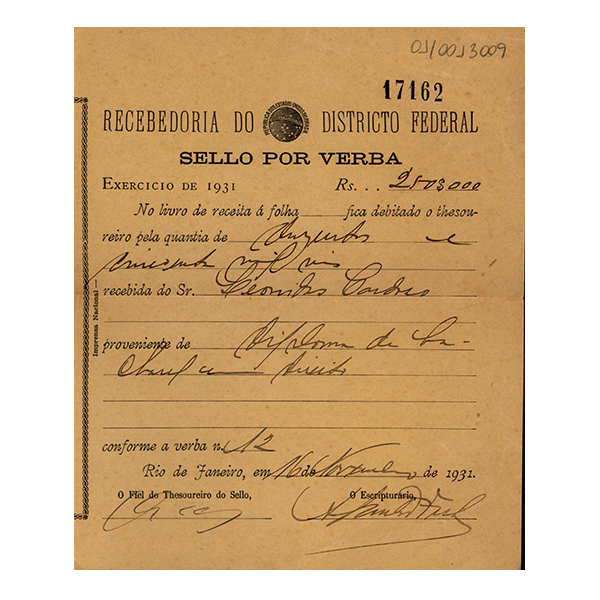 01/0013009
17162
RECEBEDORIA DO DISTRICTO FEDERAL
SELLO POR VERBA
EXERCICIO DE 1931 Rs. . . 250$000
No livro de receita á folha fica debitado o thesou-
reiro pela quantia de duzentos e
cincoenta mil reis
recebida do Sr. Leonidas Cardoso
proveniente de Diploma de ba-
charel em Direito
conforme a verba n. 12
Rio de Janeiro, em 16 de Novembro de 1931.
O Fiel do Thesoureiro do Sello, O Escripturário,
Imprensa Nacional